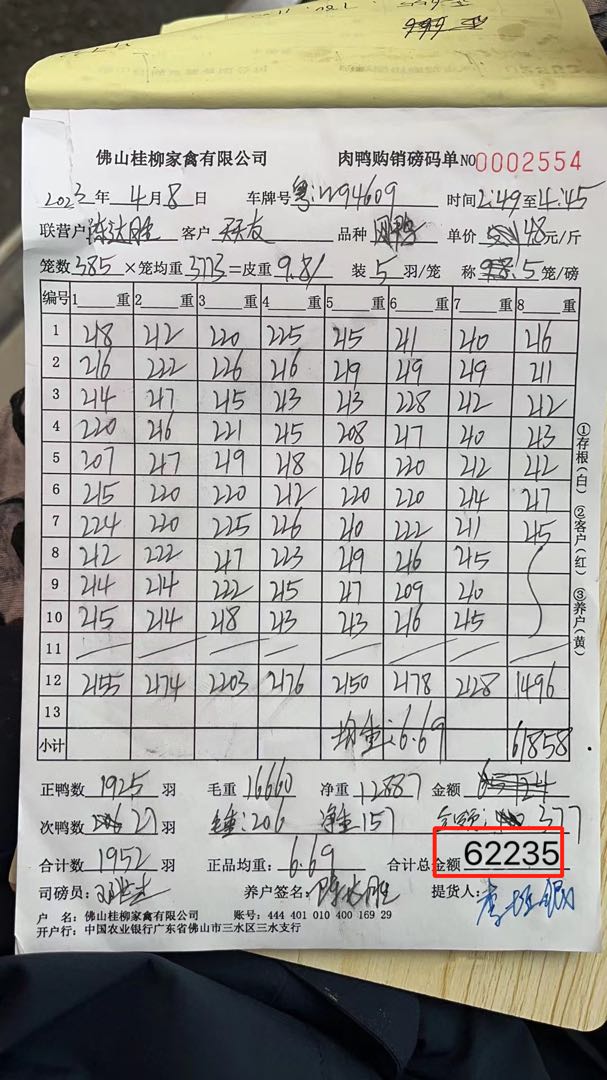 佛山桂柳家禽有限公司 肉鸭购销磅码单 NO 0002554
2023年 4月 8日 车牌号 粤: 时间 2:49至 4:45
联营户 客户 品种 单价 48元/斤
笼数 385 ×笼均重 373 =皮重 9.81 装 5 羽/笼 称 .5 笼/磅
编号 1 重 2 重 3 重 4 重 5 重 6 重 7 重 8 重
1 218 212 220 225 215 211 210 216
2 216 222 226 216 219 219 219 211
3 214 217 215 213 213 228 212 212
4 220 216 221 215 208 217 210 213
5 207 217 219 218 216 220 212 212
6 215 220 220 212 220 220 214 217
7 224 220 225 226 210 222 211 215
8 212 222 217 223 219 216 215
9 214 214 222 215 217 209 210
10 215 214 218 213 213 216 215
11
12 2155 2174 2203 2176 2150 2178 2128 1496
13
小计 均重:6.69 61858
①存根(白) ②客户(红) ③养户(黄)
正鸭数 1925 羽 毛重 16660 净重 12887 金额
次鸭数 27 羽 毛重:206 净重157 金额: 377
合计数 1952 羽 正品均重: 6.69 合计总金额 62235
司磅员: 养户签名: 提货人:
户 名:佛山桂柳家禽有限公司 账号:444 401 010 400 169 29
开户行:中国农业银行广东省佛山市三水区三水支行